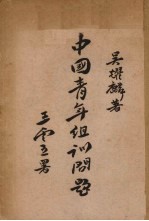 吳耀麟著
中國青年組訓問題
王雲五署